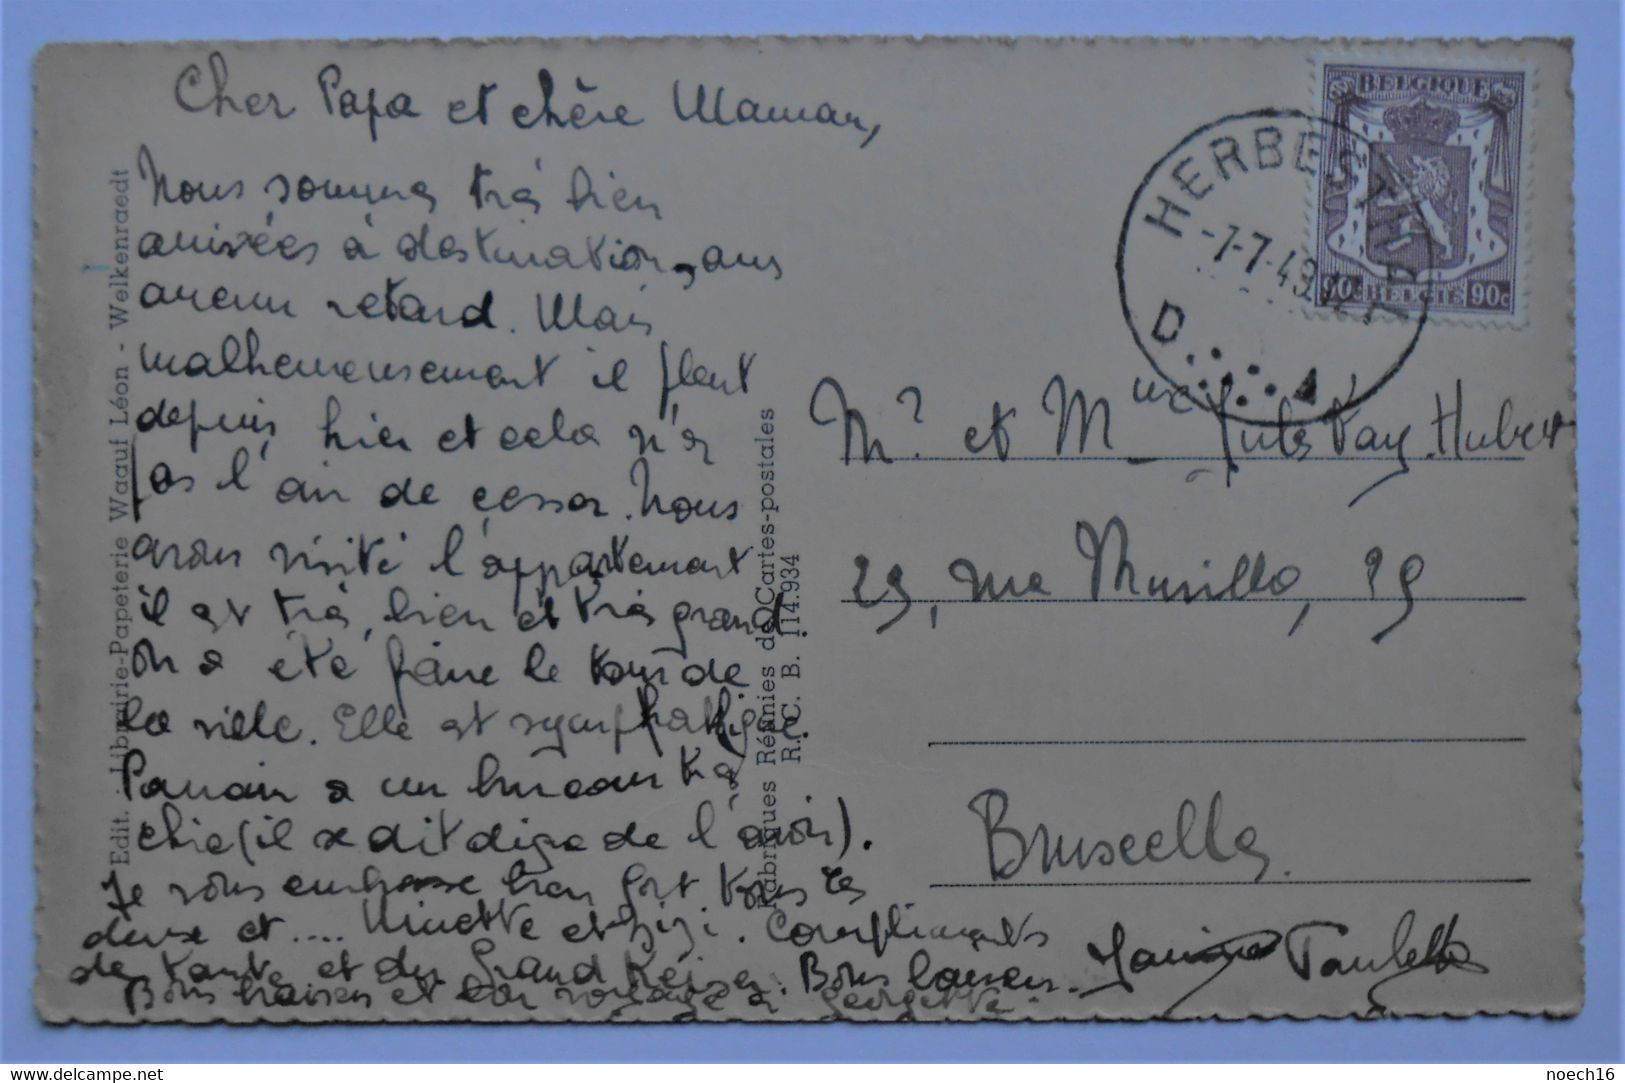 Cher Papa et chère Maman,
Nous sommes très bien
arrivées à destination, sans
aucun retard. Mais
malheureusement il pleut
depuis hier et cela n'a
pas l'air de cesser. Nous
avons visité l'appartement
il est très bien et très grand
on a été faire le tour de
la ville. Elle est symphatique.
Parrain a un bureau très
chic (il se dit digne de l'avoir).
Je vous embrasse bien fort tous les
deux et .... Minette et Zizi. Compliments
de Tante et du Grand Keizer. Bons baisers.
Bons baisers et bon voyage à Georgette.
Paulette
Edit. : Librairie-Papeterie Waauf Léon - Welkenraedt
Fabriques Réunies de Cartes-postales
R. C. B. 114.934
BELGIQUE
90c BELGIË 90c
HERBESTHAL
-7-7-49
D A
Mr et Mme Jules Fay-Hubert
29, rue Murillo, 29
Bruxelles.
noech16